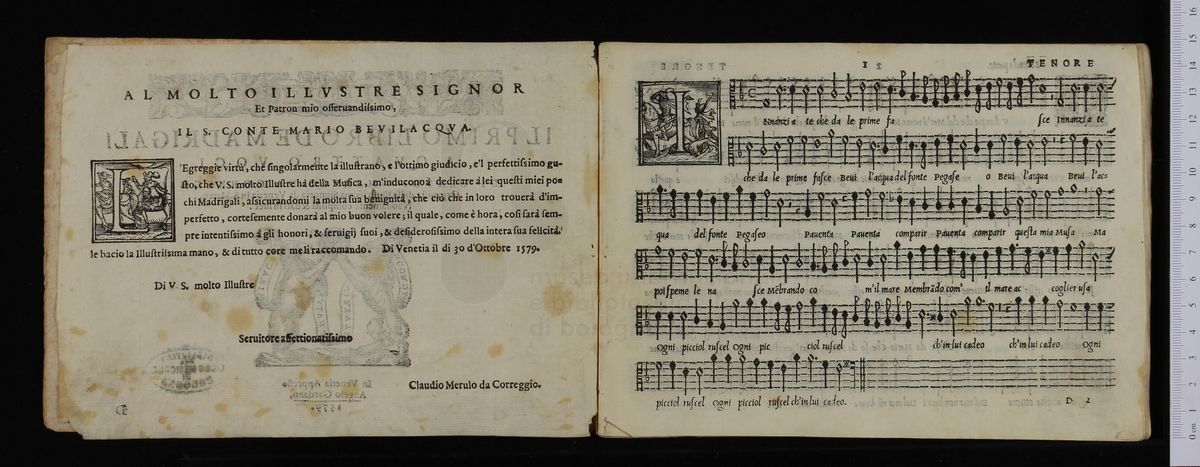 AL MOLTO ILLVSTRE SIGNOR
Et Patron mio osseruandissimo,
IL S. CONTE MARIO BEVILACQVA.
L'Egreggie virtù, che singolarmente la illustrano, e l'ottimo giudicio, e'l perfettissimo gu-
sto, che V. S. molto Illustre hà della Musica, m'inducono à dedicare à lei questi miei po-
chi Madrigali, assicurandomi la molta sua benignità, che ciò che in loro trouerà d'im-
perfetto, cortesemente donarà al mio buon volere; il quale, come è hora, così sarà sem-
pre intentissimo à gli honori, & seruigij suoi, & desiderosissimo della intera sua felicità.
le bacio la Illustrissima mano, & di tutto core me li raccomando. Di Venetia il di 30 d'Ottobre 1579.
Di V. S. molto Illustre
Seruitore affettionatissimo
Claudio Merulo da Correggio.
1 TENORE
INnanzi a te che da le prime fa sce Innanzi a te
che da le prime fasce Beui l'acqua del fonte Pegase o Beui l'acqua Beui l'ac=
qua del fonte Pegaseo Pauenta Pauenta comparir Pauenta comparir questa mia Musa Ma
poi speme le na sce Mẽbrando co m'il mare Membrãdo com' il mare ac coglier usa
Ogni picciol ruscel Ogni pic ciol ruscel ch'in lui cadeo ch'in lui cadeo Ogni
picciol ruscel Ogni picciol ruscel ch'in lui cadeo.
D 1